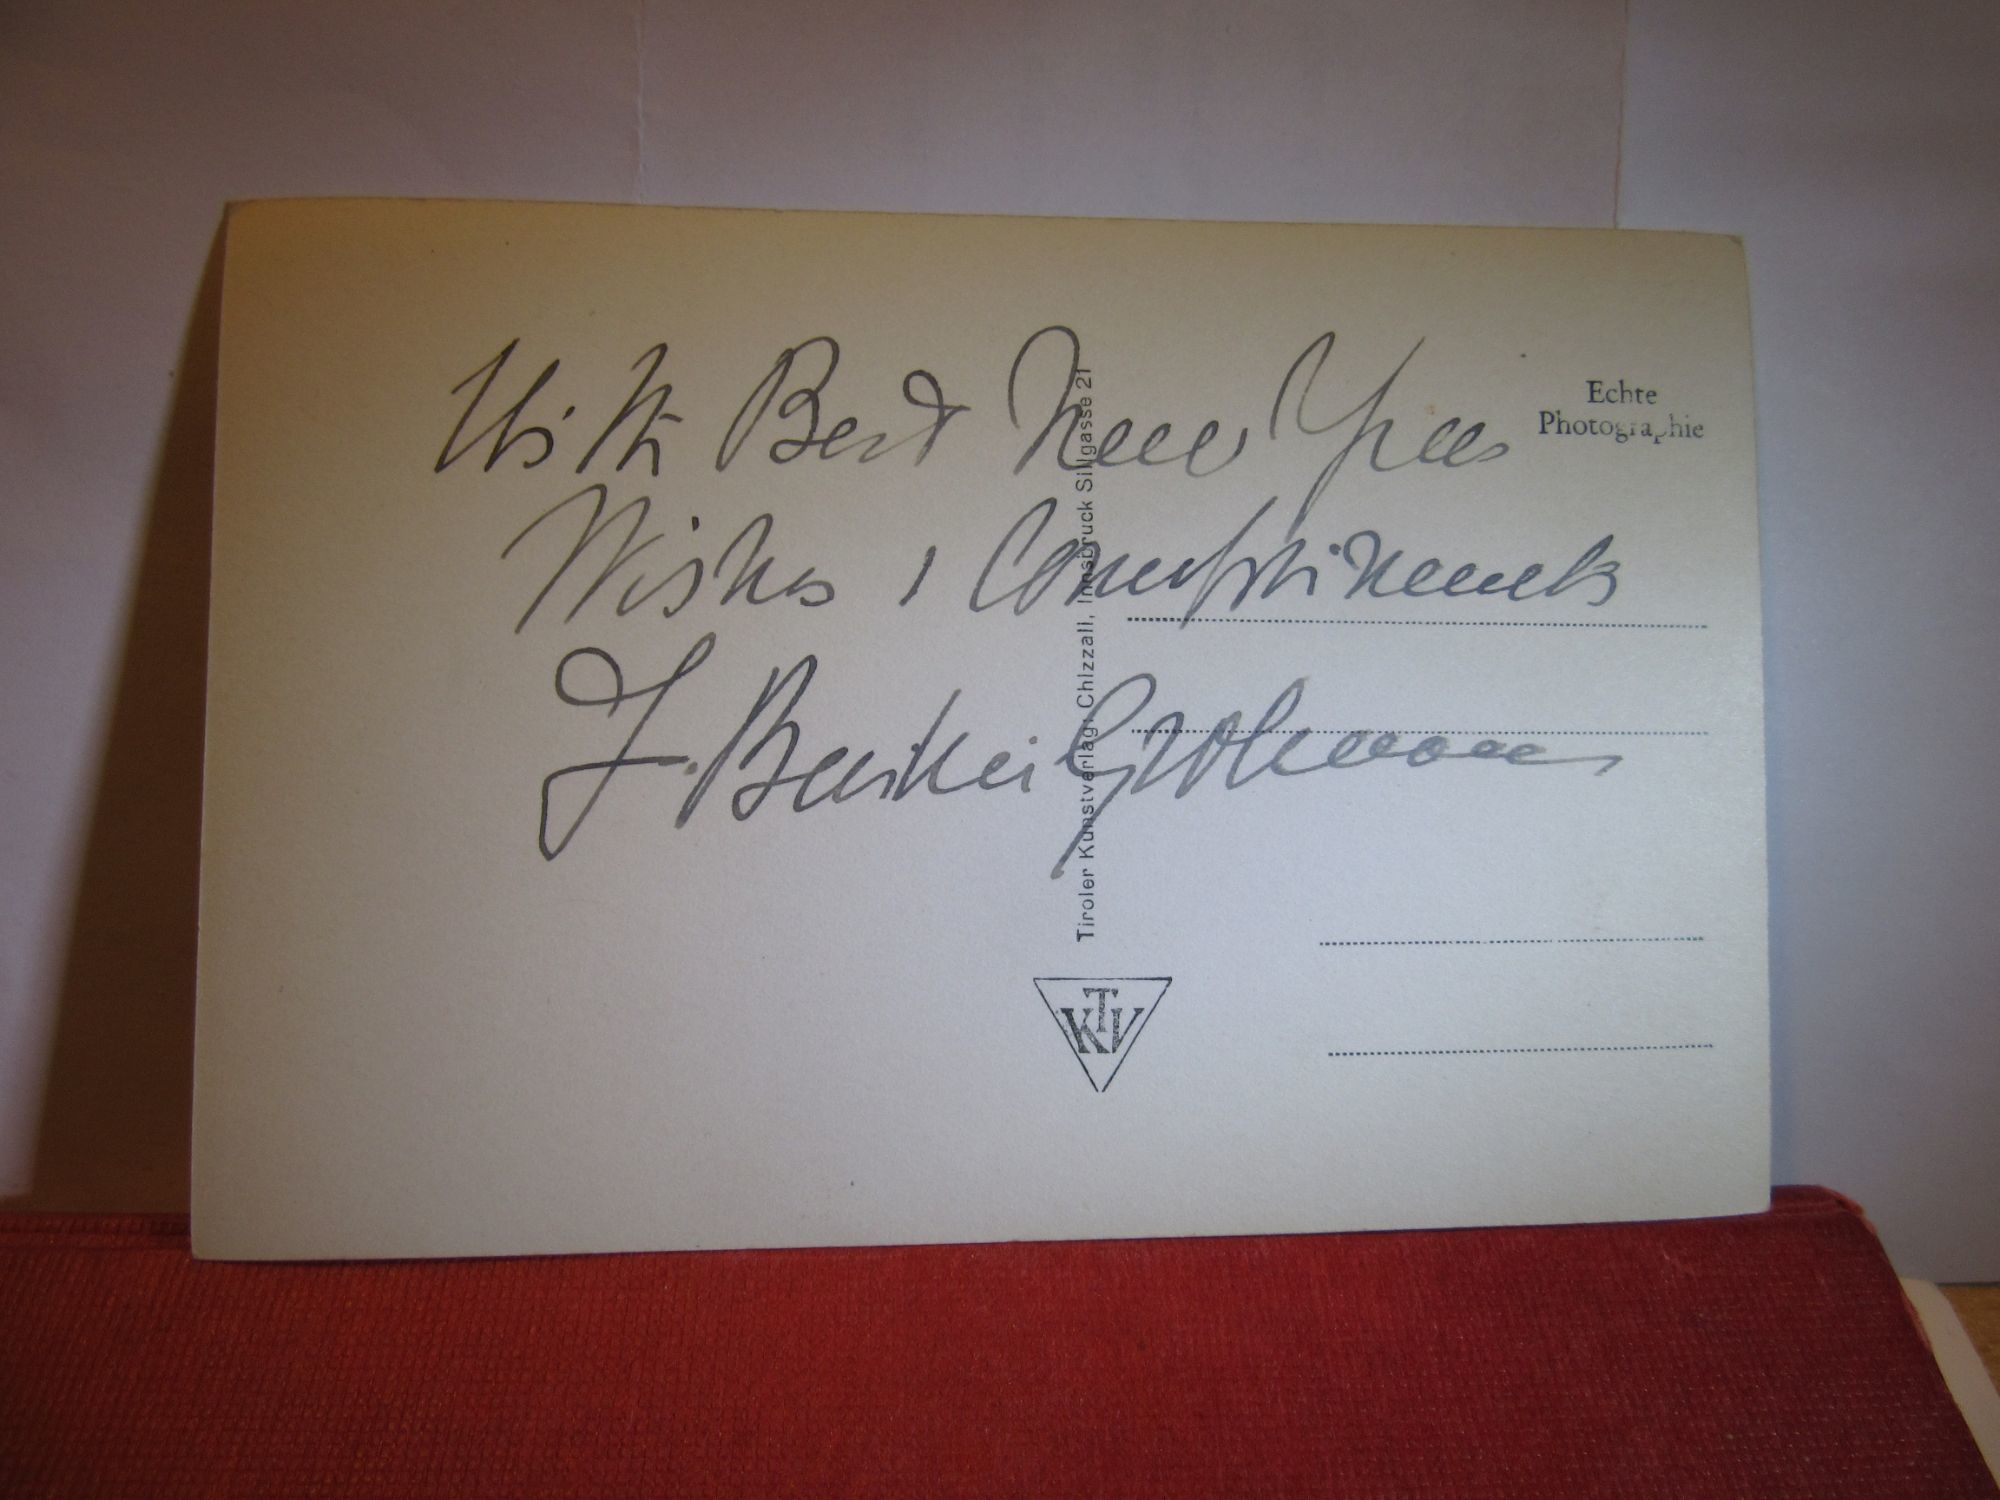 With Best New Years
Wishes & Compliments
F. Baillie Grohman
Echte
Photographie
Tiroler Kunstverlag: Chizzali, Innsbruck Sillgasse 21
KTV